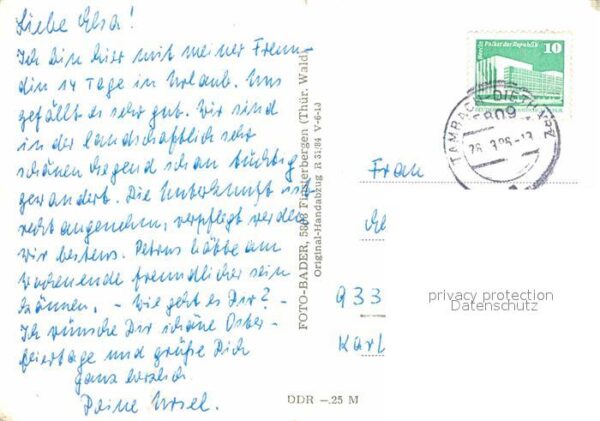 Liebe Elsa!
Ich bin hier mit meiner Freun-
din 14 Tage in Urlaub. Uns
gefällt es sehr gut. Wir sind
in der landschaftlich sehr
schönen Gegend schon tüchtig
gewandert. Die Unterkunft ist
recht angenehm, verpflegt werden
wir bestens. Petrus hätte am
Wochenende freundlicher sein
können. – Wie geht es Dir? –
Ich wünsche Dir schöne Oster-
feiertage und grüße Dich
ganz herzlich
Deine Ursel.
FOTO-BADER, 5808 Finsterbergen (Thür. Wald)
Original-Handabzug R 31/84 V-6-14
DDR –.25 M
Palast der Republik
10
DDR
TAMBACH-DIETHARZ
5809
Frau
933
Karl
privacy protection
Datenschutz